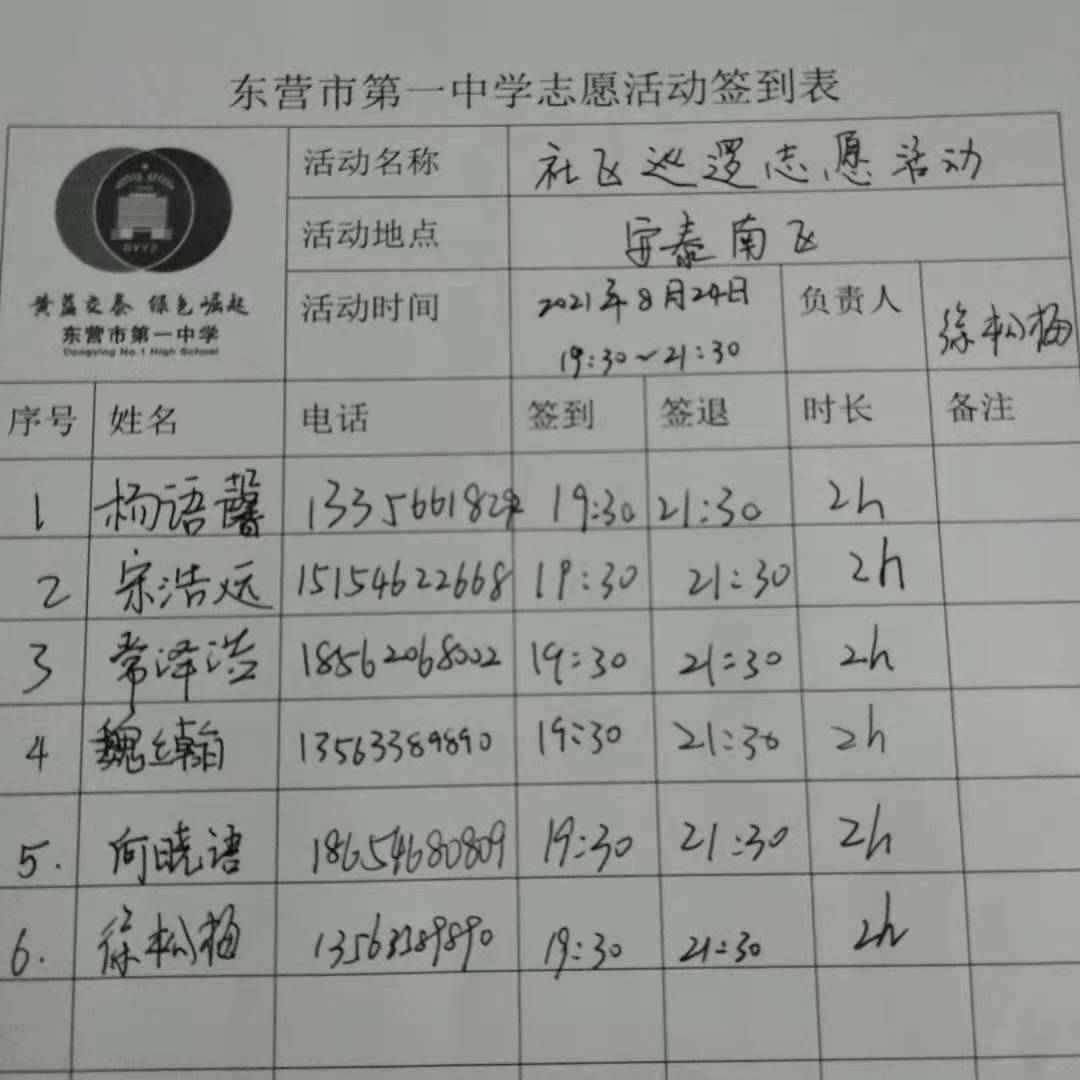 东营市第一中学志愿活动签到表
活动名称 社区巡逻志愿活动
活动地点 安泰南区
黄蓝交泰 绿色崛起
东营市第一中学
Dongying No.1 High School
活动时间 2021年8月24日 负责人 徐松梅
19:30~21:30
序号 姓名 电话 签到 签退 时长 备注
1 杨语馨 19:30 21:30 2h
2 宋浩远 15154622668 19:30 21:30 2h
3 常泽浩 18562068002 19:30 21:30 2h
4 魏 13563389890 19:30 21:30 2h
5. 向晓语 18654680809 19:30 21:30 2h
6. 徐松梅 13563389890 19:30 21:30 2h